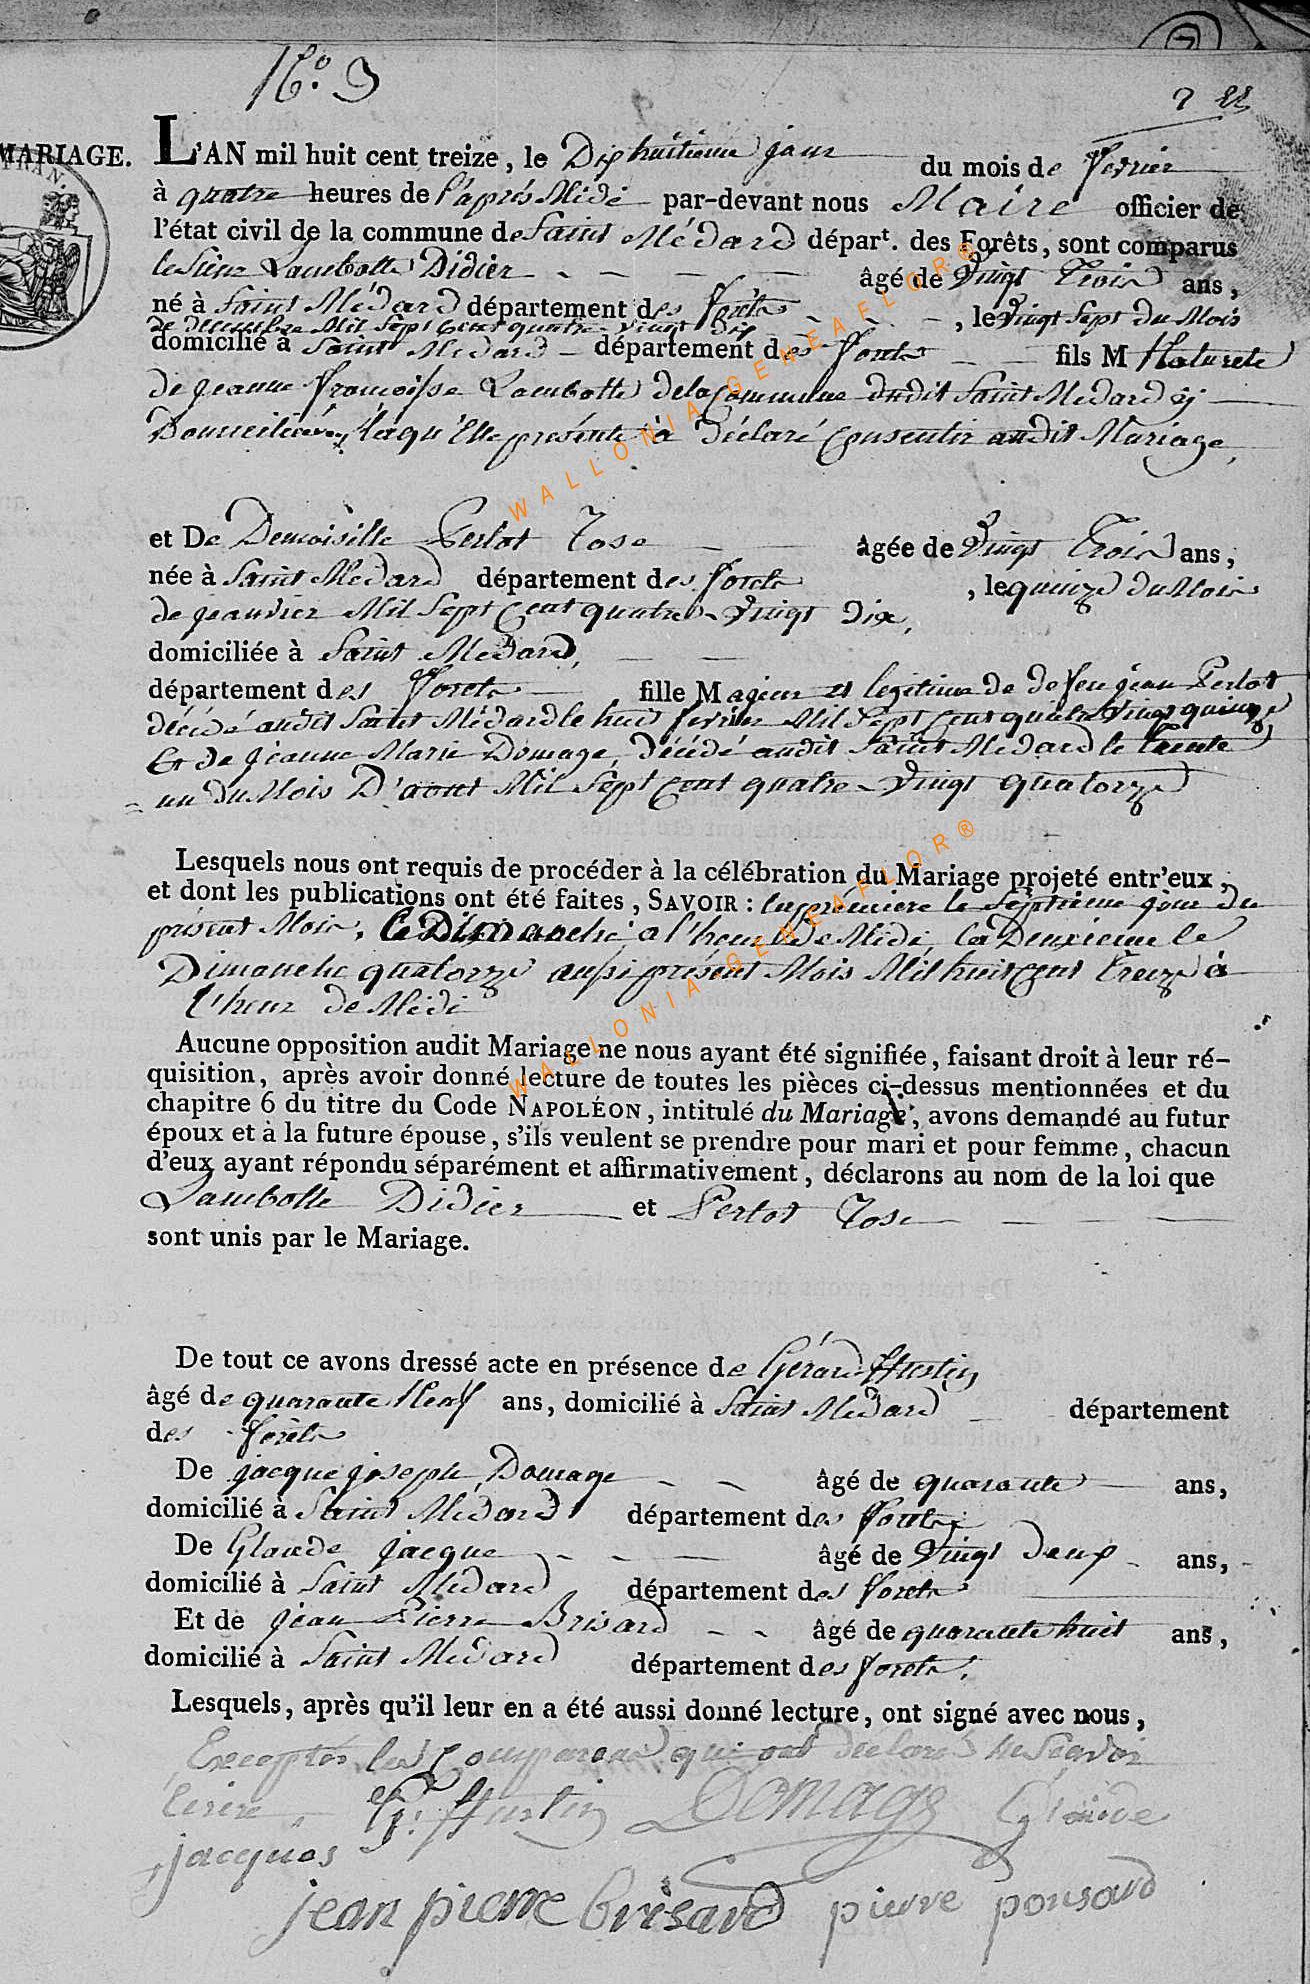 N.o 3
2 22
MARIAGE.
L'AN mil huit cent treize, le Dix huitieme jour du mois de fevrier
à quatre heures de l'aprés Midi par-devant nous Maire officier de
l'état civil de la commune de Saint Médard départ. des Forêts, sont comparus
le Sieur Lambotte Didier âgé de Vingt Trois ans,
né à Saint Médard département des forêts, le Vingt Sept du Mois
de Decembre Mil Sept Cent quatre-vingt dix
domicilié à Saint Médard département des forets fils M Naturele
de jeanne françoisse Lambotte de la Commune dudit Saint Médard y
Domiciliée, laqu'Elle présente à Déclaré Consentir audit Mariage,
et De Demoiselle Perlot Rose âgée de Vingt Trois ans,
née à Saint Médard département des forets, le quinze du Mois
de jeanvier Mil Sept Cent quatre-Vingt Dix,
domiciliée à Saint Médard,
département des forets fille Majeur et legitime de de feu jean Perlot
décédé audit Saint Médard le huit fevrier Mil Sept Cent quatre Vingt quinze
Et de jeanne Marie Domage, Décédé audit Saint Médard le Trente
un du Mois D'aout Mil Sept Cent quatre-Vingt quatorze
Lesquels nous ont requis de procéder à la célébration du Mariage projeté entr'eux,
et dont les publications ont été faites, SAVOIR : la première le Septieme jour du
présent Mois, le Dimanche, a l'heure de Midi, la Deuxieme le
Dimanche quatorze aussi présent Mois Mil huit Cent Treize à
l'heur de Midi
Aucune opposition audit Mariage ne nous ayant été signifiée, faisant droit à leur ré-
quisition, après avoir donné lecture de toutes les pièces ci-dessus mentionnées et du
chapitre 6 du titre du Code NAPOLÉON, intitulé du Mariage, avons demandé au futur
époux et à la future épouse, s'ils veulent se prendre pour mari et pour femme, chacun
d'eux ayant répondu séparément et affirmativement, déclarons au nom de la loi que
Lambotte Didier et Perlot Rose
sont unis par le Mariage.
De tout ce avons dressé acte en présence de Gérard Hustin
âgé de quarante Neuf ans, domicilié à Saint Médard département
des forêts
De jacque joseph Domage âgé de quarante ans,
domicilié à Saint Médard département des forets
De Glaude jacque âgé de Vingt deux ans,
domicilié à Saint Médard département des forets
Et de jean Pierre Brisard âgé de quarante huit ans,
domicilié à Saint Médard département des forets.
Lesquels, après qu'il leur en a été aussi donné lecture, ont signé avec nous,
Exceptés les Comparant qui ont declaré ne Scavoir
Ecrire G: Hustin Domage Glaude
jacques
jean pierre brisard pierre ponsard
WALLONIA-GENEAFLOR®
WALLONIA-GENEAFLOR®